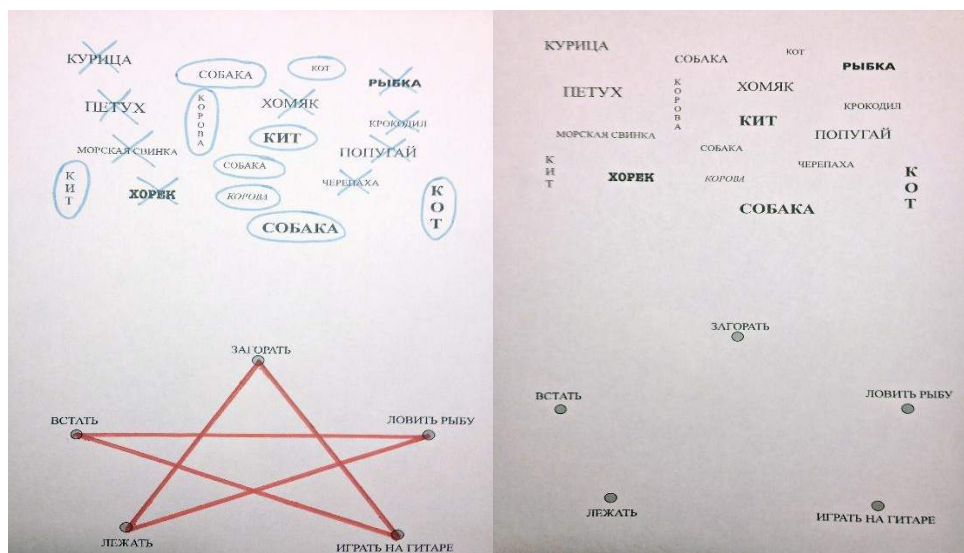 КУРИЦА
СОБАКА
КОТ
РЫБКА
ПЕТУХ
КОРОВА
ХОМЯК
КРОКОДИЛ
КИТ
МОРСКАЯ СВИНКА
ПОПУГАЙ
СОБАКА
ЧЕРЕПАХА
КИТ
ХОРЕК
КОРОВА
КОТ
СОБАКА
ЗАГОРАТЬ
ВСТАТЬ
ЛОВИТЬ РЫБУ
ЛЕЖАТЬ
ИГРАТЬ НА ГИТАРЕ
КУРИЦА
СОБАКА
КОТ
РЫБКА
ПЕТУХ
КОРОВА
ХОМЯК
КРОКОДИЛ
КИТ
МОРСКАЯ СВИНКА
ПОПУГАЙ
СОБАКА
ЧЕРЕПАХА
КИТ
ХОРЕК
КОРОВА
КОТ
СОБАКА
ЗАГОРАТЬ
ВСТАТЬ
ЛОВИТЬ РЫБУ
ЛЕЖАТЬ
ИГРАТЬ НА ГИТАРЕ